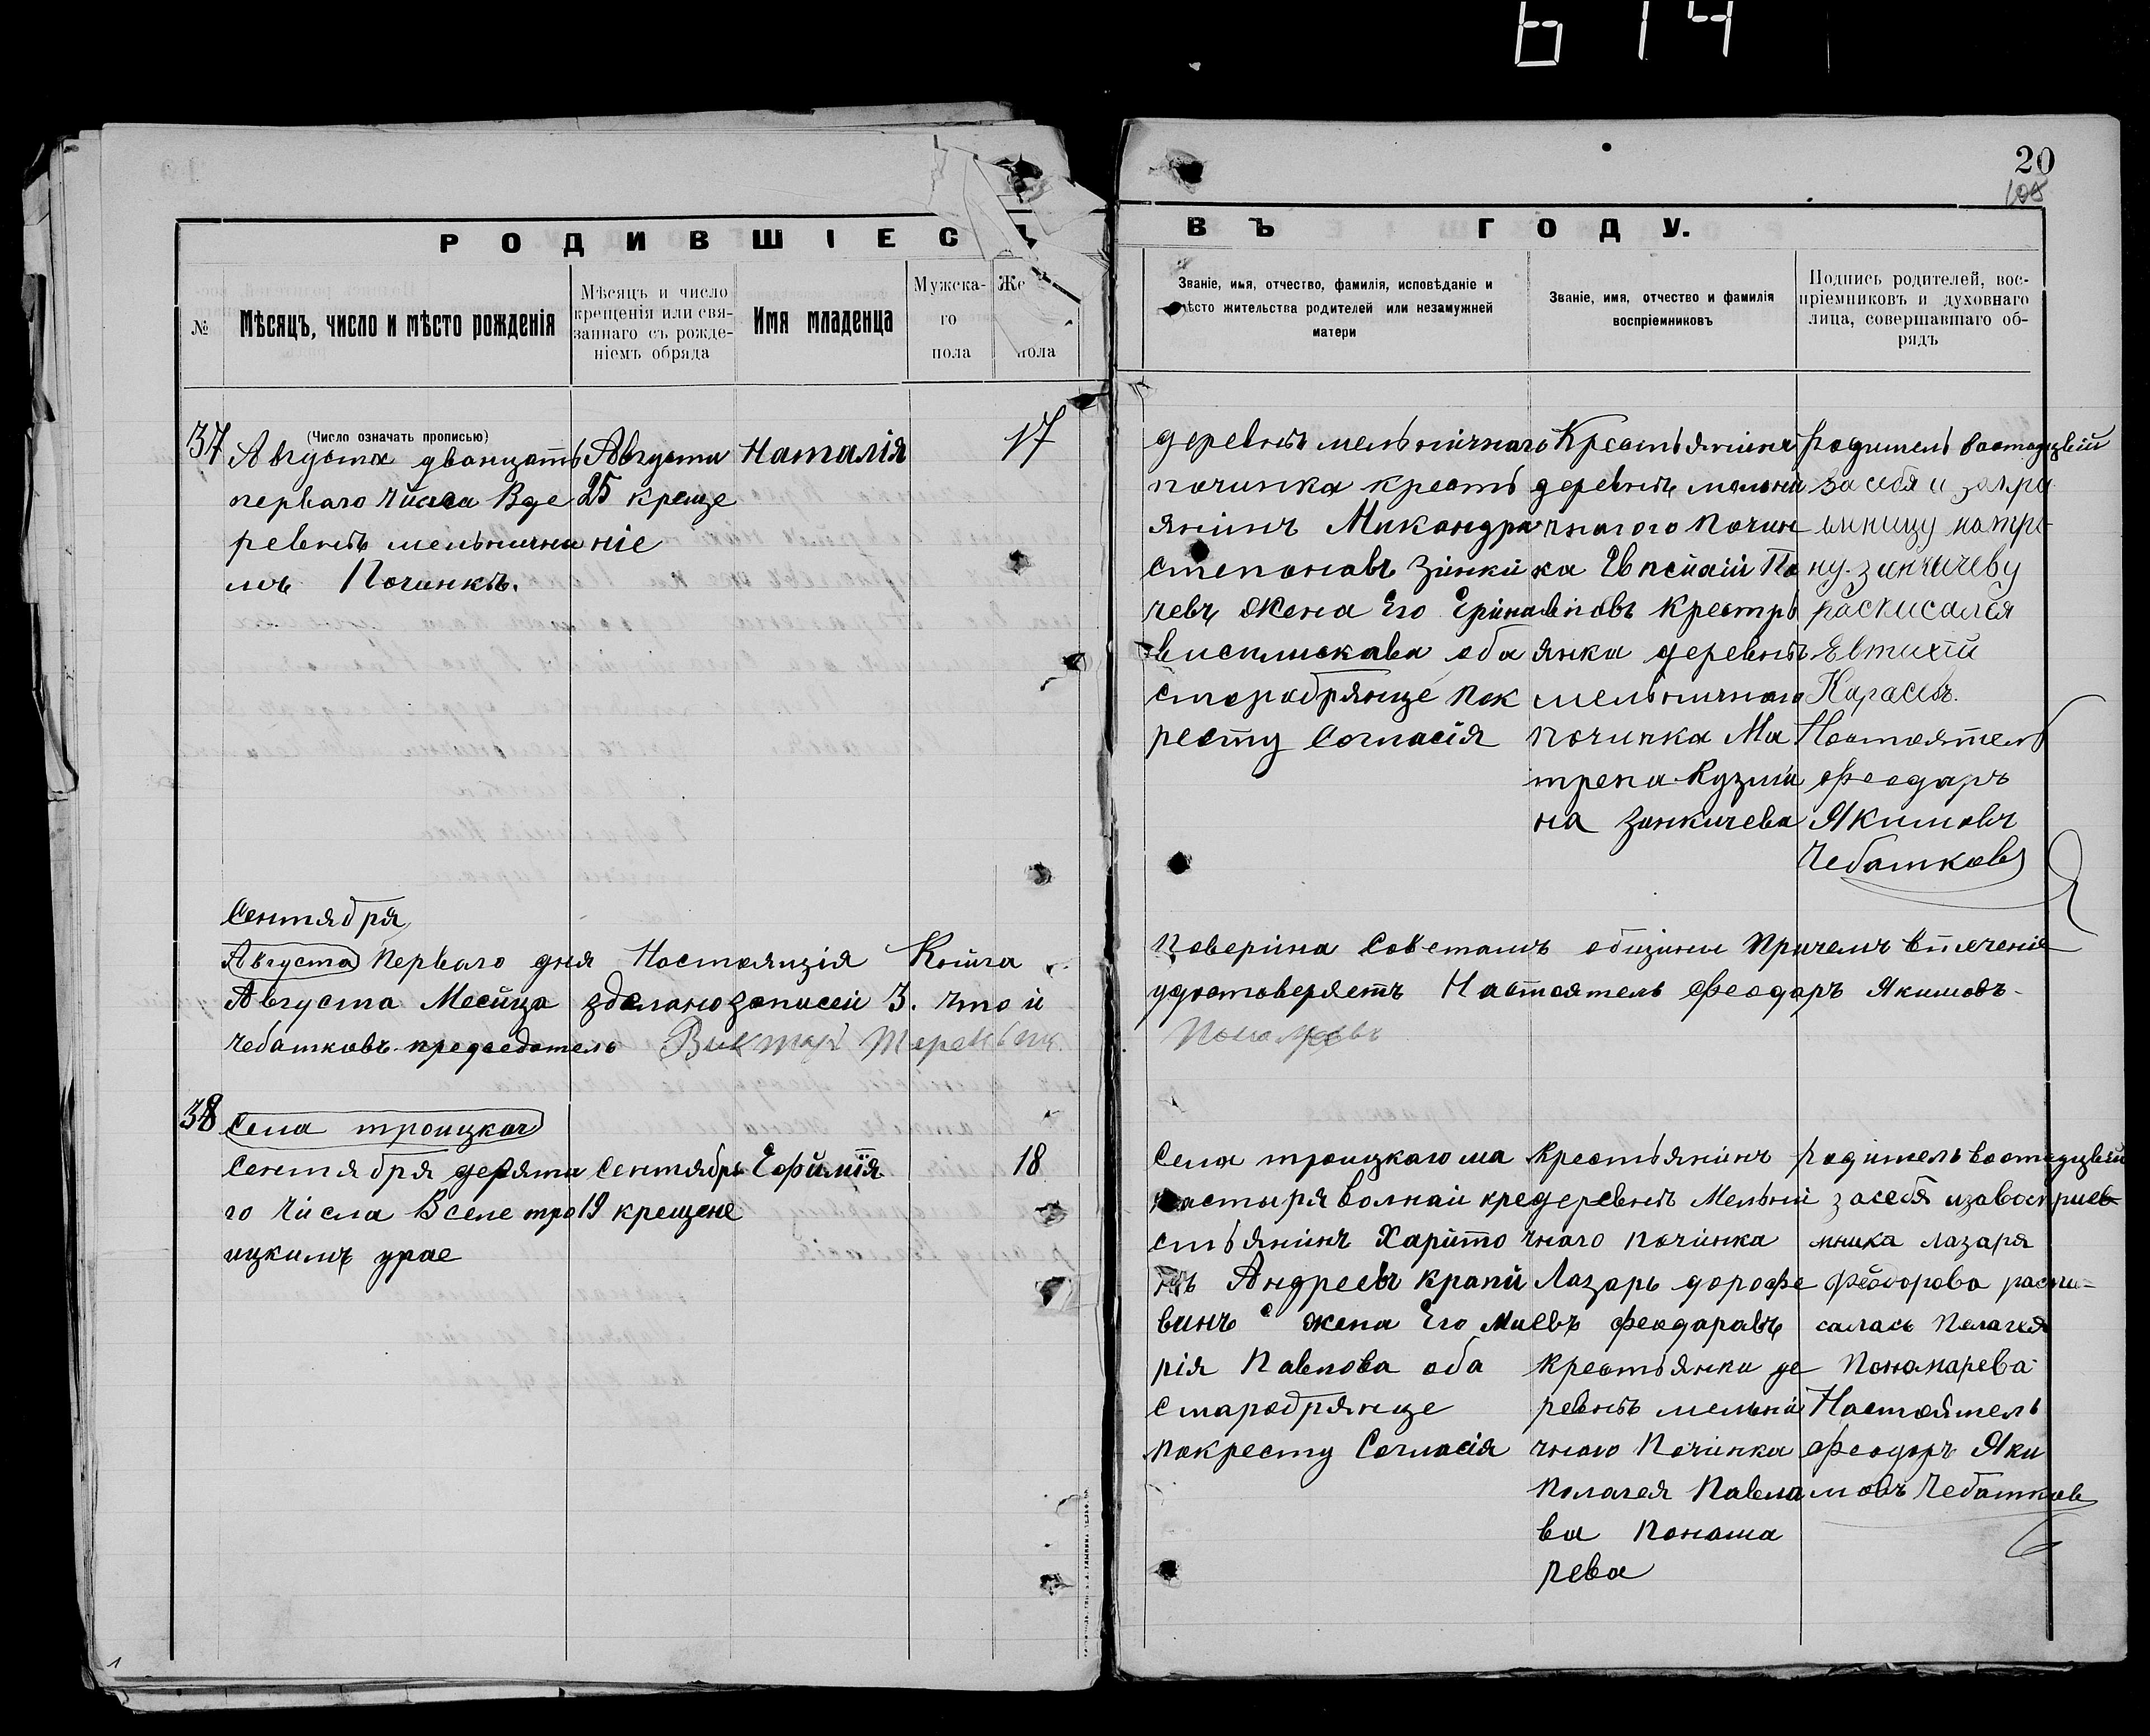 614
20
108
РОДИВШІЕС
ВЪ ГОДУ.
№
Мѣсяцъ, число и мѣсто рожденія
Мѣсяцъ и число
крещенія или свя-
заннаго съ рожде-
ніемъ обряда
Имя младенца
Мужска-
го
пола
Же
пола
Званіе, имя, отчество, фамилія, исповѣданіе и
мѣсто жительства родителей или незамужней
матери
Званіе, имя, отчество и фамилія
воспріемниковъ
Подпись родителей, вос-
пріемниковъ и духовнаго
лица, совершавшаго об-
рядъ
37
(Число означать прописью)
Августа дванцать
перваго числа Вде
ревнѣ мельнични
мъ Починкѣ.
Августа
25 креще
ніе
Наталія
17
деревнѣ мельничнаго
починка кресть
янинъ Микандра
степонавъ Зинки
чевъ жена Его Ерина
висплискава оба
старобрянце пок
ресту Согласія
Крестьянинъ
деревнѣ мельни
чнагого почин
ка
крестья
янка деревнѣ
мельничнаго
починка Ма
трена Кузми
на Зинкичева
Родитель
за себя и запри
ьмницу матре
ну Зинкичеву
расписался
Евтихій
Карасевъ.
Настоятель
Феодаръ
Якимовъ
Чебатковъ
Сентября
Августа Перваго дня Настоящія Книга
Августа Месица зделано записей 3. что и
Чебатковъ председатель Виктар
поверіна Советамъ общини причемъ втечение
удостоверяетъ Настоятель Феодаръ Якимовъ
38
Села троицкаг
Сентября девята
го числа Вселе тро
ицкимъ урае
Сентябрь
19 крещене
Ефимїя
18
Села троицкаго ма
настыря волнаи кре
стьянинъ Харито
нъ Андреевъ Крапи
винъ е жена Его Ма
рія Павлова оба
старобрянце
покресту Согласія
Крестьянинъ
деревнѣ Мельни
чнаго починка
Лазарь дорофе
евъ Феодаравъ
крестьянки де
ревнѣ мельни
чнаго Починка
Полагея Павла
ва Понома
рева
Родитель
засебя изавосприе
мника Лазаря
Фёдорова распи-
салась Палагея
Пономарева
Настоятель
Феодоръ Яки
мовъ Чебатков